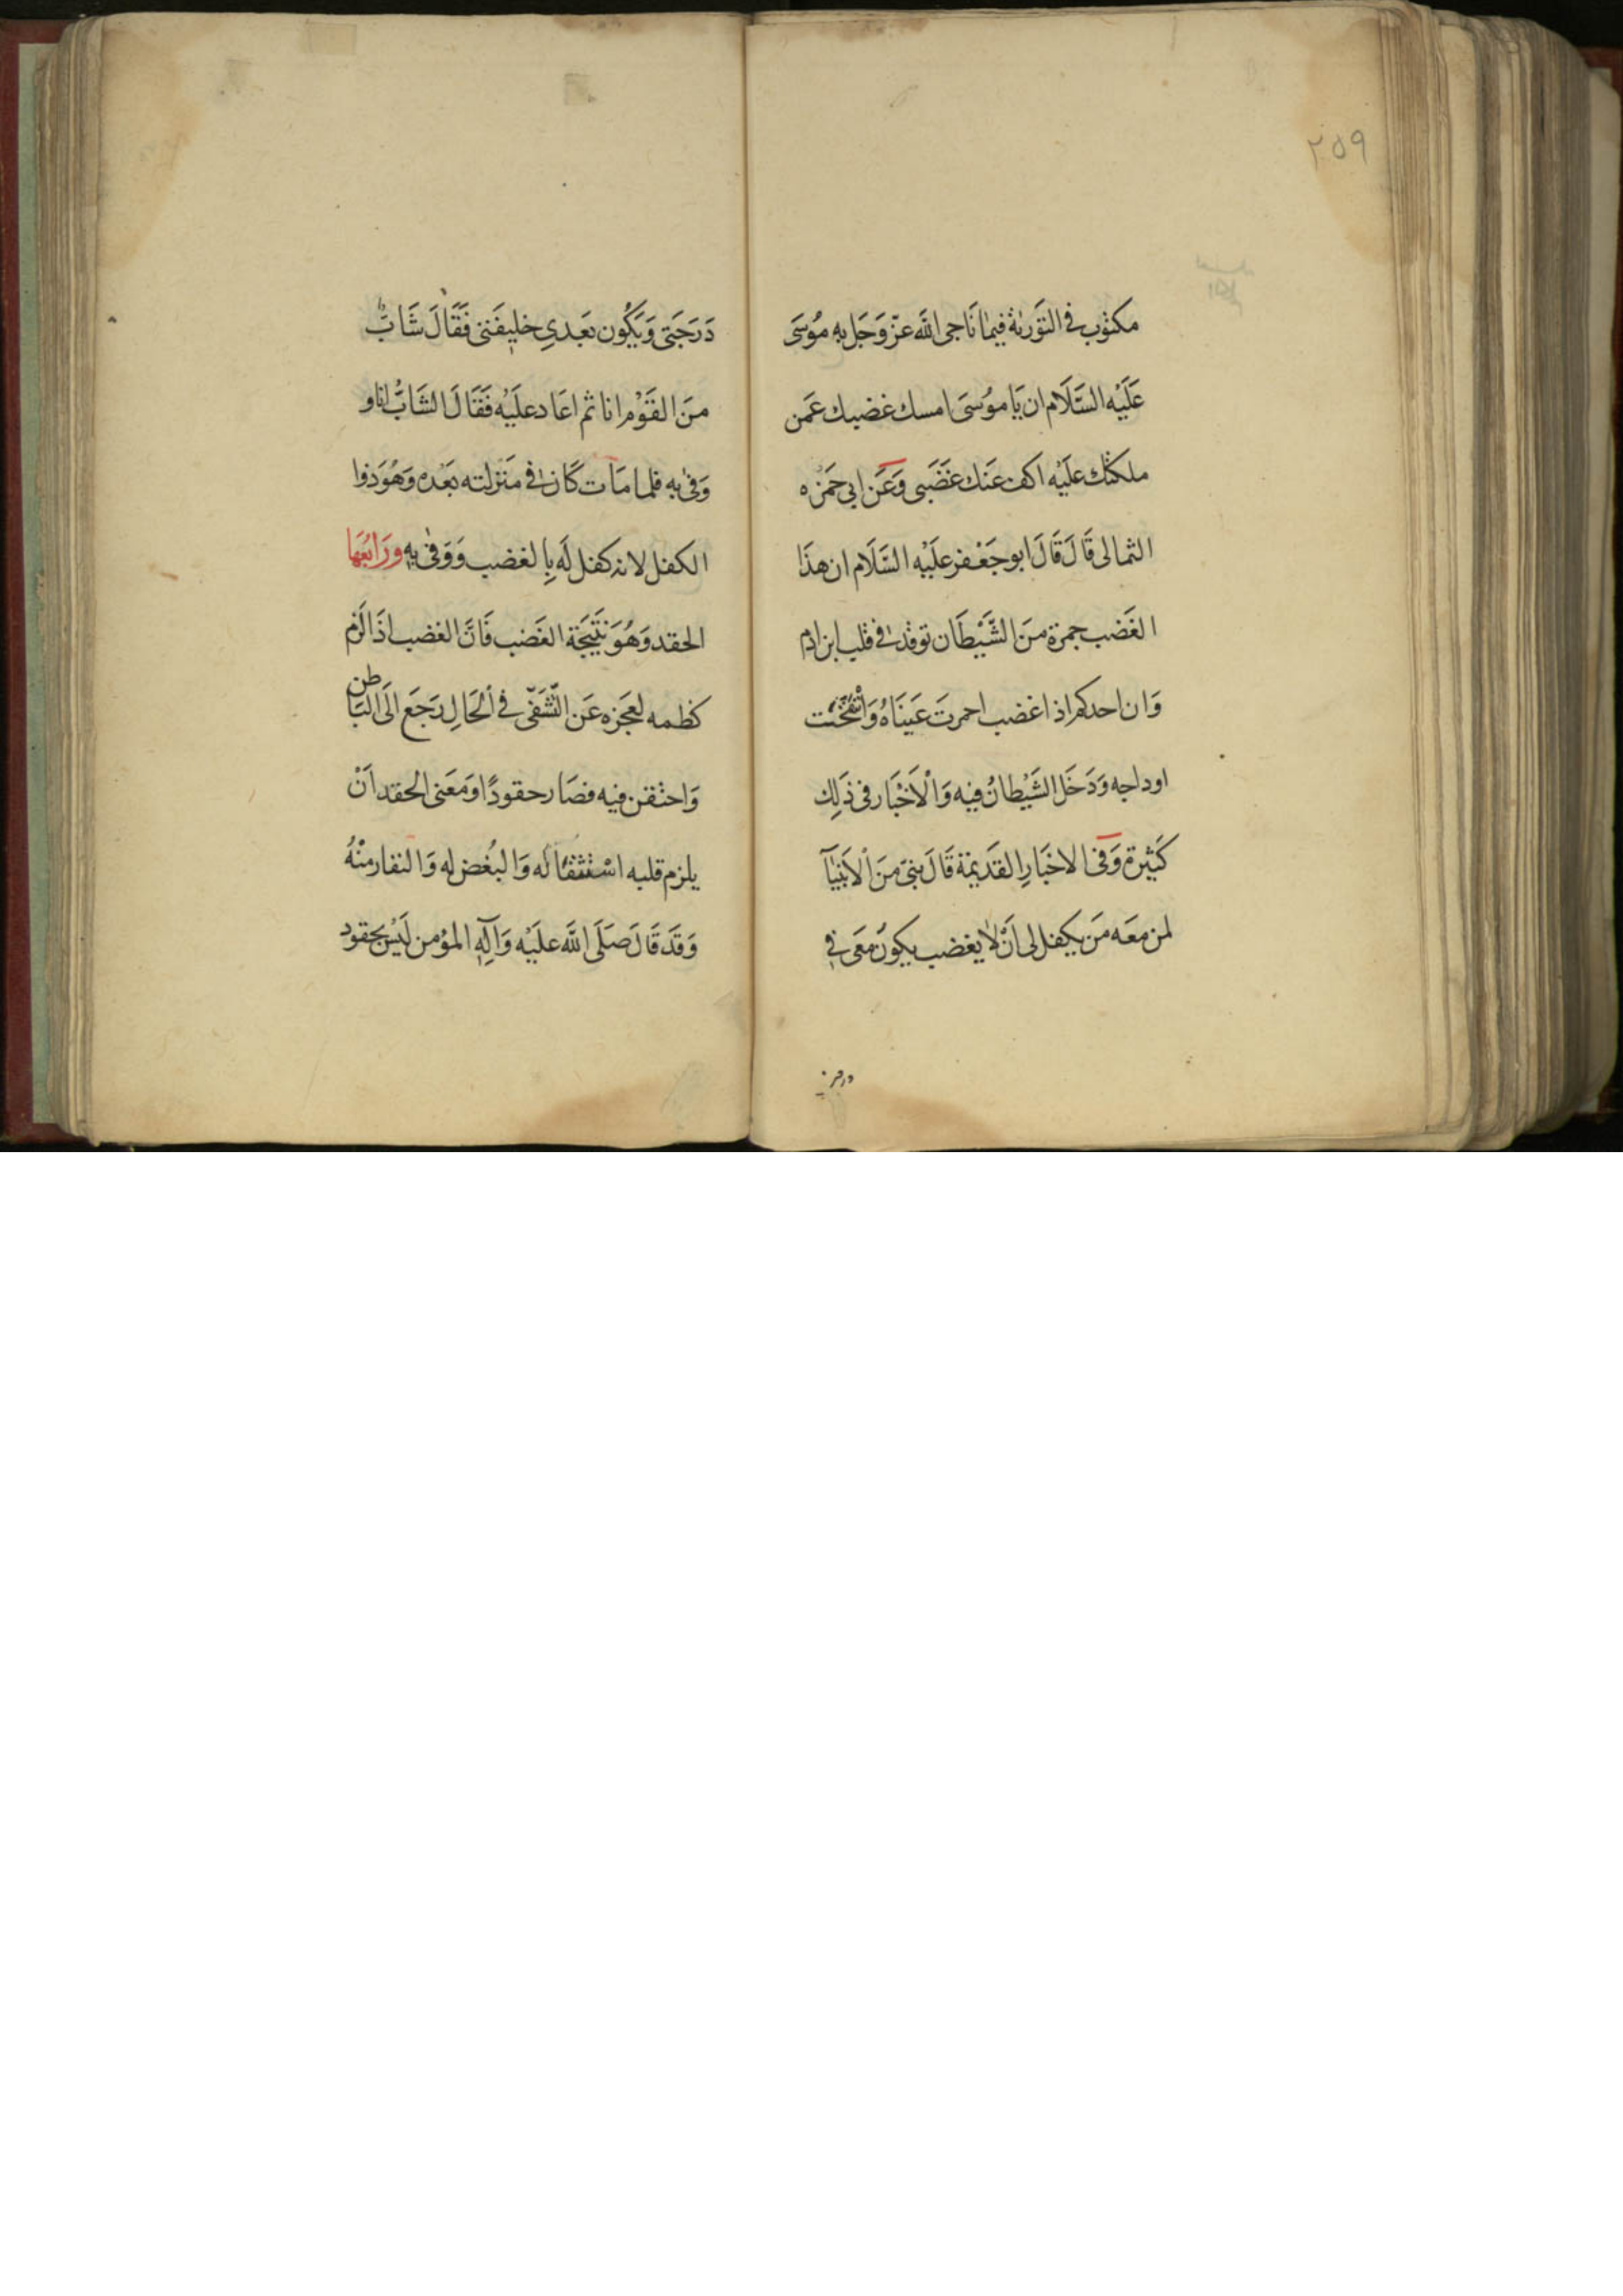 ٢٥٩
مكتوب في التَوَرية فيما نَاجى اللّه عزّ وَجَل به مُوسَى
عَلَيْه السَّلَام ان يَا موُسىَ امسك غضبك عَمن
ملكتك علَيْه اكف عَنك غَضَبى وَعَن ابى حَمزه
الثمالى قَالَ قَالَ ابو جَعْفر علَيْه السَّلَام ان هذَا
الغَضب جمرة منَ الشَّيْطَان توقد فى قلب ابن ادم
وَان احدكم اذا غضب احمرتَ عَينَاهُ وَانْتَفَخَت
اوداجه وَدَخَل الشَيْطانُ فيه وَالْاَخْبَار فى ذَلِك
كَثِيرة وَفى الاخَبارِ القَديمَة قَالَ نبىّ منَ الْاَنبيآ
لمن معَه مَن يكفل لى اَنْ لا يغضب يكونُ مَعَى فى
درجتى
دَرَجَتى وَيَكُون بَعدي خليفَتى فَقَالَ شَابٌّ
منَ القَوْم انا ثم اعَاد علَيْه فَقَالَ الشَابُّ انا و
وَفىٰ به فلما مَات كَانَ فى مَنَزلته بَعْده وَهُوَ ذوا
الكفل لانه كفل لَه بِالغضب وَوَفىٰ بِه وَرَابعُهَا
الحقد وَهُوَ نَتيَجَة الغَضب فَانَّ الغضب اذَا لَزم
كظمه لعَجَزه عَن التَّشَفّى فى اْلحَالِ رَجَع الَى البَاطن
وَاحتقن فيه فصَار حقودًا وَمَعَنى الحقد اَنْ
يلزم قلبه اسْتثقَالَه وَالبُغض له وَالنفار منْهُ
وَقَد قَالَ صَلَى اللَّه علَيْه وَآلِهِ المؤمن لَيْسَ بحقود